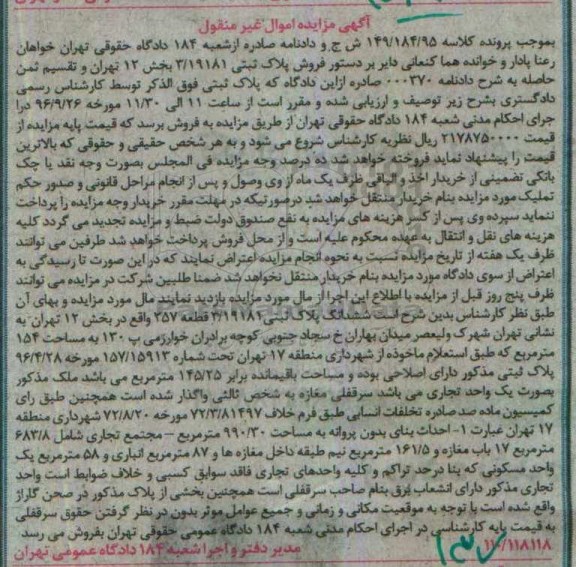 آگهی مزایده اموال غیر منقول
بموجب پرونده کلاسه ۱۴۹/۱۸۴/۹۵ ش ح و دادنامه صادره ازشعبه ۱۸۴ دادگاه حقوقی تهران خواهان
رعنا پادار و خوانده هما کنعانی دایر بر دستور فروش پلاک ثبتی ۳/۱۹۱۸۱ بخش ۱۲ تهران و تقسیم ثمن
حاصله به شرح دادنامه ۰۰۰۳۷۰ صادره ازاین دادگاه که پلاک ثبتی فوق الذکر توسط کارشناس رسمی
دادگستری بشرح زیر توصیف و ارزیابی شده و مقرر است از ساعت ۱۱ الی ۱۱/۳۰ مورخه ۹۶/۹/۲۶ درا
جرای احکام مدنی شعبه ۱۸۴ دادگاه حقوقی تهران از طریق مزایده به فروش برسد که قیمت پایه مزایده از
قیمت ۲۱۷۸۷۵۰۰۰۰ ریال نظریه کارشناس شروع می شود و به هر شخص حقیقی و حقوقی که بالاترین
قیمت را پیشنهاد نماید فروخته خواهد شد ده درصد وجه مزایده فی المجلس بصورت وجه نقد یا چک
بانکی تضمینی از خریدار اخذ و الباقی ظرف یک ماه از وی وصول و پس از انجام مراحل قانونی و صدور حکم
تملیک مورد مزایده بنام خریدار منتقل خواهد شد درصورتیکه در مهلت مقرر خریدار وجه مزایده را پرداخت
ننماید سپرده وی پس از کسر هزینه های مزایده به نفع صندوق دولت ضبط و مزایده تجدید می گردد کلیه
هزینه های نقل و انتقال به عهده محکوم علیه است و از محل فروش پرداخت خواهد شد طرفین می توانند
ظرف یک هفته از تاریخ مزایده نسبت به نحوه انجام مزایده اعتراض نمایند که در این صورت تا رسیدگی به
اعتراض از سوی دادگاه مورد مزایده بنام خریدار منتقل نخواهد شد ضمنا طلبین شرکت در مزایده می توانند
ظرف پنج روز قبل از مزایده با اطلاع این اجرا از مال مورد مزایده بازدید نمایند مال مورد مزایده و بهای آن
طبق نظر کارشناس بدین شرح است ششدانگ پلاک ثبتی ۳/۱۹۱۸۱ قطعه ۳۵۷ واقع در بخش ۱۲ تهران به
نشانی تهران شهرک ولیعصر میدان بهاران خ سجاد جنوبی کوچه برادران خوارزمی پ ۱۳۰ به مساحت ۱۵۴
مترمربع که طبق استعلام ماخوذه از شهرداری منطقه ۱۷ تهران تحت شماره ۱۵۷/۱۵۹۱۳ مورخه ۹۶/۴/۲۸
پلاک ثبتی مذکور دارای اصلاحی بوده و مساحت باقیمانده برابر ۱۴۵/۲۵ مترمربع می باشد ملک مذکور
بصورت یک واحد تجاری می باشد سرقفلی مغازه به شخص ثالثی واگذار شده است همچنین طبق رای
کمیسیون ماده صد صادره تخلفات انسابی طبق فرم خلاف ۷۲/۳/۸۱۴۹۷ مورخه ۷۲/۸/۲۰ شهرداری منطقه
۱۷ تهران عبارت ۱- احداث بنای بدون پروانه به مساحت ۹۹۰/۳۰ مترمربع – مجتمع تجاری شامل ۶۸۳/۸
مترمربع ۱۷ باب مغازه و ۱۶۱/۵ مترمربع نیم طبقه داخل مغازه ها و ۸۷ مترمربع انباری و ۵۸ مترمربع یک
واحد مسکونی که بنا درحد تراکم و کلیه واحدهای تجاری فاقد سوابق کسبی و خلاف ضوابط است واحد
تجاری مذکور دارای انشعاب برق بنام صاحب سرقفلی است همچنین بخشی از پلاک مذکور در صحن گاراژ
واقع شده است با توجه به موقعیت مکانی و زمانی و جمیع عوامل موثر بدون در نظر گرفتن حقوق سرقفلی
به قیمت پایه کارشناسی در اجرای احکام مدنی شعبه ۱۸۴ دادگاه عمومی حقوقی تهران بفروش می رسد
۱۱۰/۱۱۸۱۱۸ مدیر دفتر و اجرا شعبه ۱۸۴ دادگاه عمومی تهران